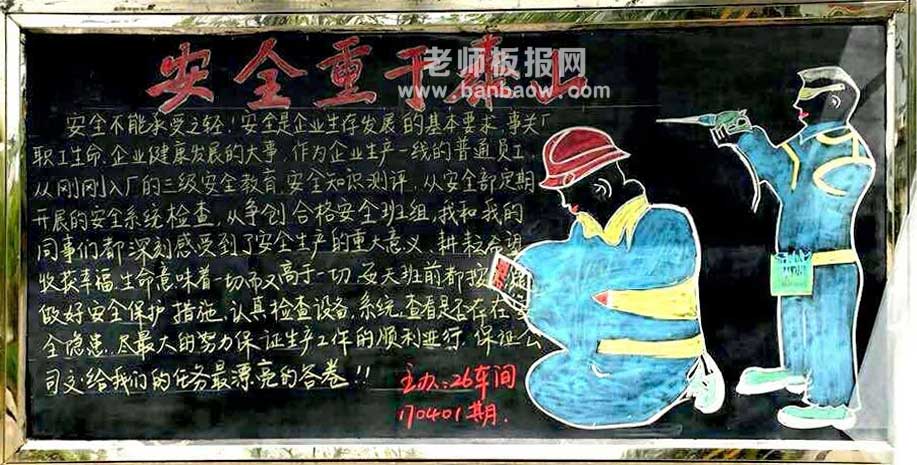 安全重于泰山
老师板报网
www.banbaow.com
安全不能承受之轻！安全是企业生存发展的基本要求，事关广
职工生命、企业健康发展的大事，作为企业生产一线的普通员工，
从刚刚入厂的三级安全教育、安全知识测评，从安全部定期
开展的安全系统检查，从争创合格安全班组，我和我的
同事们都深刻感受到了安全生产的重大意义、耕耘希望
收获幸福，生命意味着一切而又高于一切，每天班前都按
做好安全保护措施，认真检查设备、系统，查看是否存在安
全隐患，尽最大的努力保证生产工作的顺利进行，保证公
司交给我们的任务最漂亮的答卷！！
主办：26车间
170401期．